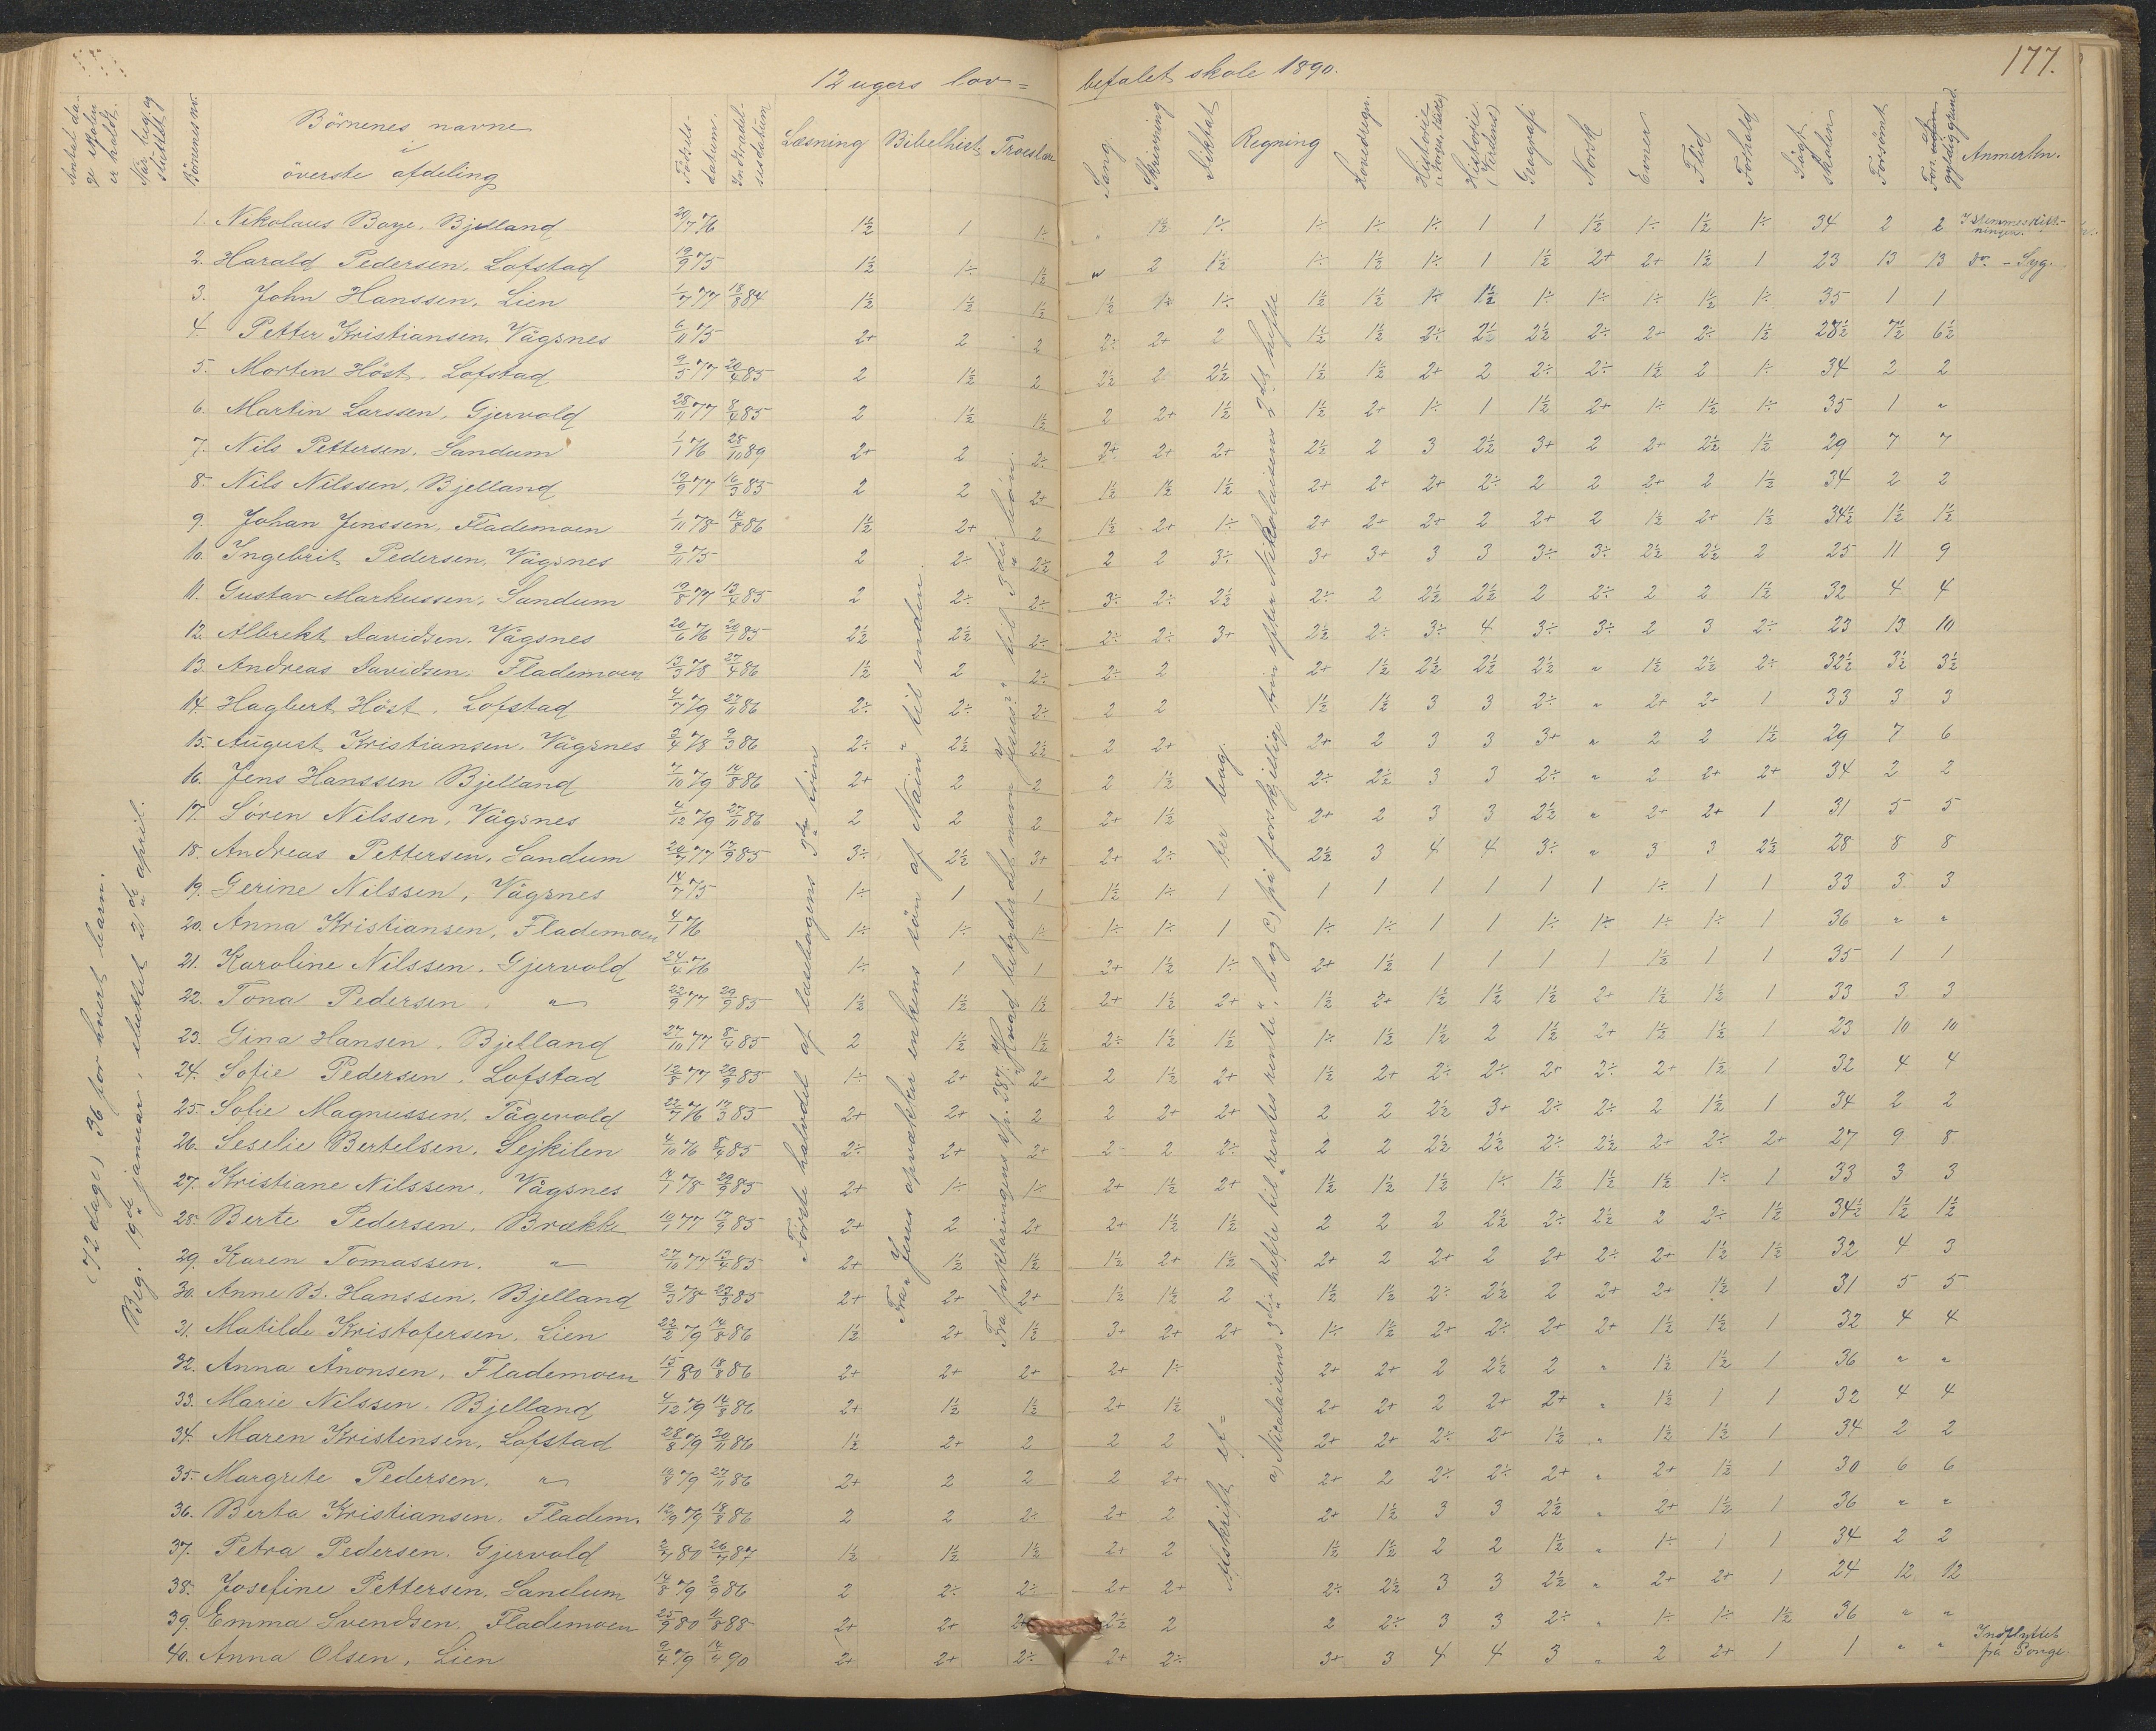 177.
12 ugers lov= befalet skole 1890.
Antal da- ge skolen er holdt.
Når beg. og sluttet
Börnenes nr.
Börnenes navne i överste afdeling
Födsels- datum.
Indtrædel- sesdatum
Læsning
Bibelhist.
Troeslære
Sang.
Skrivning
Diktat
Regning
Hovedregn.
Historie (Norges, kirke)
Historie (Verdens)
Geografi
Norsk
Evner
Flid
Forhold
Sögt skolen
Forsömt
Anmerkn.
(72 dage) 36 for hvert barn.
Beg. 19de januar, sluttet 21de april.
1. Nikolaus Boye. Bjelland 20/7 76 1½ 1 1÷ " 1½ 1÷ 1÷ 1÷ 1÷ 1 1 1½ 1÷ 1½ 1÷ 34 2 2
2. Harald Pedersen. Lofstad 19/9 75 1½ 1÷ 1½ " 2 1½ 1÷ 1½ 1÷ 1 1½ 2+ 2+ 1½ 1 23 13 13 do. - Syg.
3. John Hanssen. Lien 1/7 77 18/8 84 1½ 1½ 1½ 1½ 1÷ 1÷ 1½ 1½ 1÷ 1½ 1÷ 1÷ 1÷ 1½ 1÷ 35 1 1
4. Petter Kristiansen. Vågsnes 6/11 75 2+ 2 2 2÷ 2+ 2 1½ 1½ 2÷ 2½ 2½ 2÷ 2+ 2÷ 1½ 28½ 7½ 6½
5. Morten Höst. Lofstad 9/5 77 20/4 85 2 1½ 2 2½ 2 2½ 1½ 1½ 2+ 2 2÷ 2÷ 1½ 2 1÷ 34 2 2
6. Martin Larssen. Gjervold 28/11 77 8/4 85 2 1½ 1½ 2 2+ 1½ 1½ 2+ 1÷ 1 1½ 2+ 1÷ 1½ 1÷ 35 1 "
7. Nils Pettersen. Sandum 1/1 76 28/10 89 2+ 2 2÷ 2+ 2+ 2+ 2½ 2 3 2½ 3+ 2 2+ 2½ 1½ 29 7 7
8. Nils Nilssen. Bjelland 19/9 77 16/3 85 2 2 2+ 1½ 1½ 1½ 2+ 2+ 2+ 2÷ 2 2 2+ 2 1½ 34 2 2
9. Johan Jenssen, Flademoen 1/11 78 14/8 86 1½ 2+ 2 1½ 2+ 1÷ 2+ 2+ 2+ 2 2+ 2 1½ 2+ 1½ 34½ 1½ 1½
10. Ingebrit Pedersen. Vågsnes 9/11 75 2 2÷ 2½ 2 2 3÷ 3+ 3+ 3 3 3÷ 3÷ 2½ 2½ 2 25 11 9
11. Gustav Markussen. Sandum 19/8 77 13/4 85 2 2÷ 2÷ 3÷ 2÷ 2½ 2÷ 2 2½ 2½ 2 2÷ 2 2 1½ 32 4 4
12. Albrekt Davidsen. Vågsnes 20/6 76 20/1 85 2½ 2½ 2÷ 2÷ 2÷ 3+ 2½ 2÷ 3÷ 4 3÷ 3÷ 2 3 2÷ 23 13 10
13. Andreas Davidsen. Flademoen 13/3 78 27/4 86 1½ 2 2÷ 2÷ 2 2+ 1½ 2½ 2½ 2½ " 1½ 2½ 2÷ 32½ 3½ 3½
14. Hagbert Höst. Lofstad 4/7 79 27/11 86 2÷ 2÷ 2÷ 2 2 1½ 1½ 3 3 2÷ " 2+ 2+ 1 33 3 3
15. August Kristiansen. Vågsnes 2/4 78 9/3 86 2÷ 2½ 2½ 2 2+ 2+ 2 3 3 3+ " 2 2 1½ 29 7 6
16. Jens Hanssen Bjelland 7/10 79 14/8 86 2+ 2 2 2 1½ 2÷ 2½ 3 3 2÷ " 2 2+ 2+ 34 2 2
17. Sören Nilssen. Vågsnes 4/12 79 27/11 86 2 2 2 2+ 1½ 2+ 2 3 3 2½ " 2+ 2+ 1 31 5 5
18. Andreas Pettersen. Sandum 20/7 77 17/9 85 3÷ 2½ 3+ 2+ 2÷ 2½ 3 4 4 3÷ " 3 3 2½ 28 8 8
19. Gerine Nilssen, Vågsnes 14/7 75 1÷ 1 1 1½ 1÷ 1 1 1 1 1 1 1 1÷ 1 1 33 3 3
20. Anna Kristiansen, Flademoen 4/1 76 1÷ 1÷ 1÷ 1÷ 1÷ 1 1÷ 1÷ 1 1 1÷ 1÷ 1÷ 1÷ 1 36 " "
21. Karoline Nilssen. Gjervold 24/4 76 1÷ 1 1 2+ 1½ 1÷ 2+ 1½ 1 1 1 1 1½ 1 1 35 1 1
22. Tona Pedersen. " 22/9 77 29/9 85 1½ 1½ 1½ 2+ 1½ 2+ 1½ 2+ 1½ 1½ 1½ 2+ 1½ 1½ 1 33 3 3
23. Gina Hansen. Bjelland 27/10 77 8/4 85 2 1½ 1½ 2÷ 1½ 1½ 1÷ 1½ 1½ 2 1½ 2+ 1½ 1½ 1 23 10 10
24. Sofie Pedersen. Lofstad 12/8 77 29/9 85 1÷ 2+ 2+ 2 1½ 2+ 1½ 2+ 2÷ 2÷ 2+ 2÷ 2+ 1½ 1 32 4 4
25. Sofie Magnussen. Tågevold 22/7 76 17/3 85 2+ 2+ 2 2 2+ 2+ 2 2 2½ 3+ 2÷ 2÷ 2 1½ 1 34 2 2
26. Seselie Bertelsen. Sejkilen 4/10 76 8/4 85 2÷ 2+ 2+ 2 2 2÷ 2 2 2½ 2½ 2÷ 2½ 2+ 2÷ 2+ 27 9 8
27. Kristiane Nilssen. Vågsnes 14/1 78 29/9 85 2+ 1÷ 1÷ 2+ 1½ 2+ 1½ 1½ 1½ 1÷ 1½ 1½ 1½ 1÷ 1 33 3 3
28. Berte Pedersen. Brække 10/1 77 17/9 85 2+ 2 2+ 2+ 1½ 1½ 2 2 2 2½ 2÷ 2½ 2 2÷ 1½ 34½ 1½ 1½
29. Karen Tomassen. " 27/10 77 13/4 85 2+ 1½ 1½ 1½ 2+ 1½ 2+ 2 2+ 2 2+ 2÷ 2+ 1½ 1½ 32 4 3
30. Anne B. Hanssen. Bjelland 9/3 78 23/3 85 2+ 2+ 2+ 1½ 1½ 2 1½ 1½ 2÷ 2½ 2 2+ 2+ 1½ 1 31 5 5
31. Matilde Kristofersen. Lien 22/2 79 14/8 86 1½ 2+ 1½ 3+ 2+ 2+ 1÷ 1½ 2+ 2÷ 2+ 2+ 1½ 1½ 1 32 4 4
32. Anna Ånonsen. Flademoen 15/1 80 18/8 86 2+ 2+ 2+ 2+ 1÷ 2+ 2+ 2 2½ 2 " 1½ 1½ 1 36 " "
33. Marie Nilssen. Bjelland 4/12 79 14/8 86 2+ 1½ 1½ 2+ 1½ 2+ 2+ 2 2+ 2+ " 1½ 1 1 32 4 4
34. Maren Kristensen. Lofstad 28/8 79 30/11 86 1½ 2+ 2 2 2 2+ 2+ 2÷ 2+ 1½ " 1½ 1½ 1 34 2 2
35. Margrete Pedersen. " 18/8 79 27/11 86 2+ 2 2 2 2+ 2+ 2 2÷ 2÷ 2+ " 2+ 1½ 1 30 6 6
36. Berta Kristiansen. Fladem. 12/9 79 18/8 86 2 2 2÷ 2+ 2 2+ 1½ 3 3 2½ " 2+ 1½ 1 36 " "
37. Petra Pedersen. Gjervold 2/7 80 26/7 87 1½ 1½ 1½ 2+ 2 1½ 1½ 2 2 1½ " 1÷ 1 1 34 2 2
38. Josefine Pettersen. Sandum 14/8 79 2/9 86 2 2÷ 2÷ 2+ 2+ 2÷ 2½ 3 3 2½ " 2+ 2+ 1 24 12 12
39. Emma Svendsen. Flademoen 25/9 80 11/8 88 2+ 2+ 2+ 2½ 2 2 2÷ 3 3 2÷ " 1÷ 1÷ 1½ 36 " "
40. Anna Olsen. Lien 9/4 79 14/4 90 2+ 2+ 2÷ 2+ 2÷ 3+ 3 4 4 3 " 2 2+ 1 1 " " Indflyttet fra Songe.
Förste halvdel af læsebogens 3die trin
Fra "Jesus opvækker enkens sön af Nain" til enden.
Fra forklaringens sp. 387 "Hvad betyder det navn Jesus?" til 3die bön.
Afskrift ef= ter bog.
a) Nicolaisens 3die hefte til "rentes rente", b og c) på forskjellige trin efter Nikolaisens 2det hefte